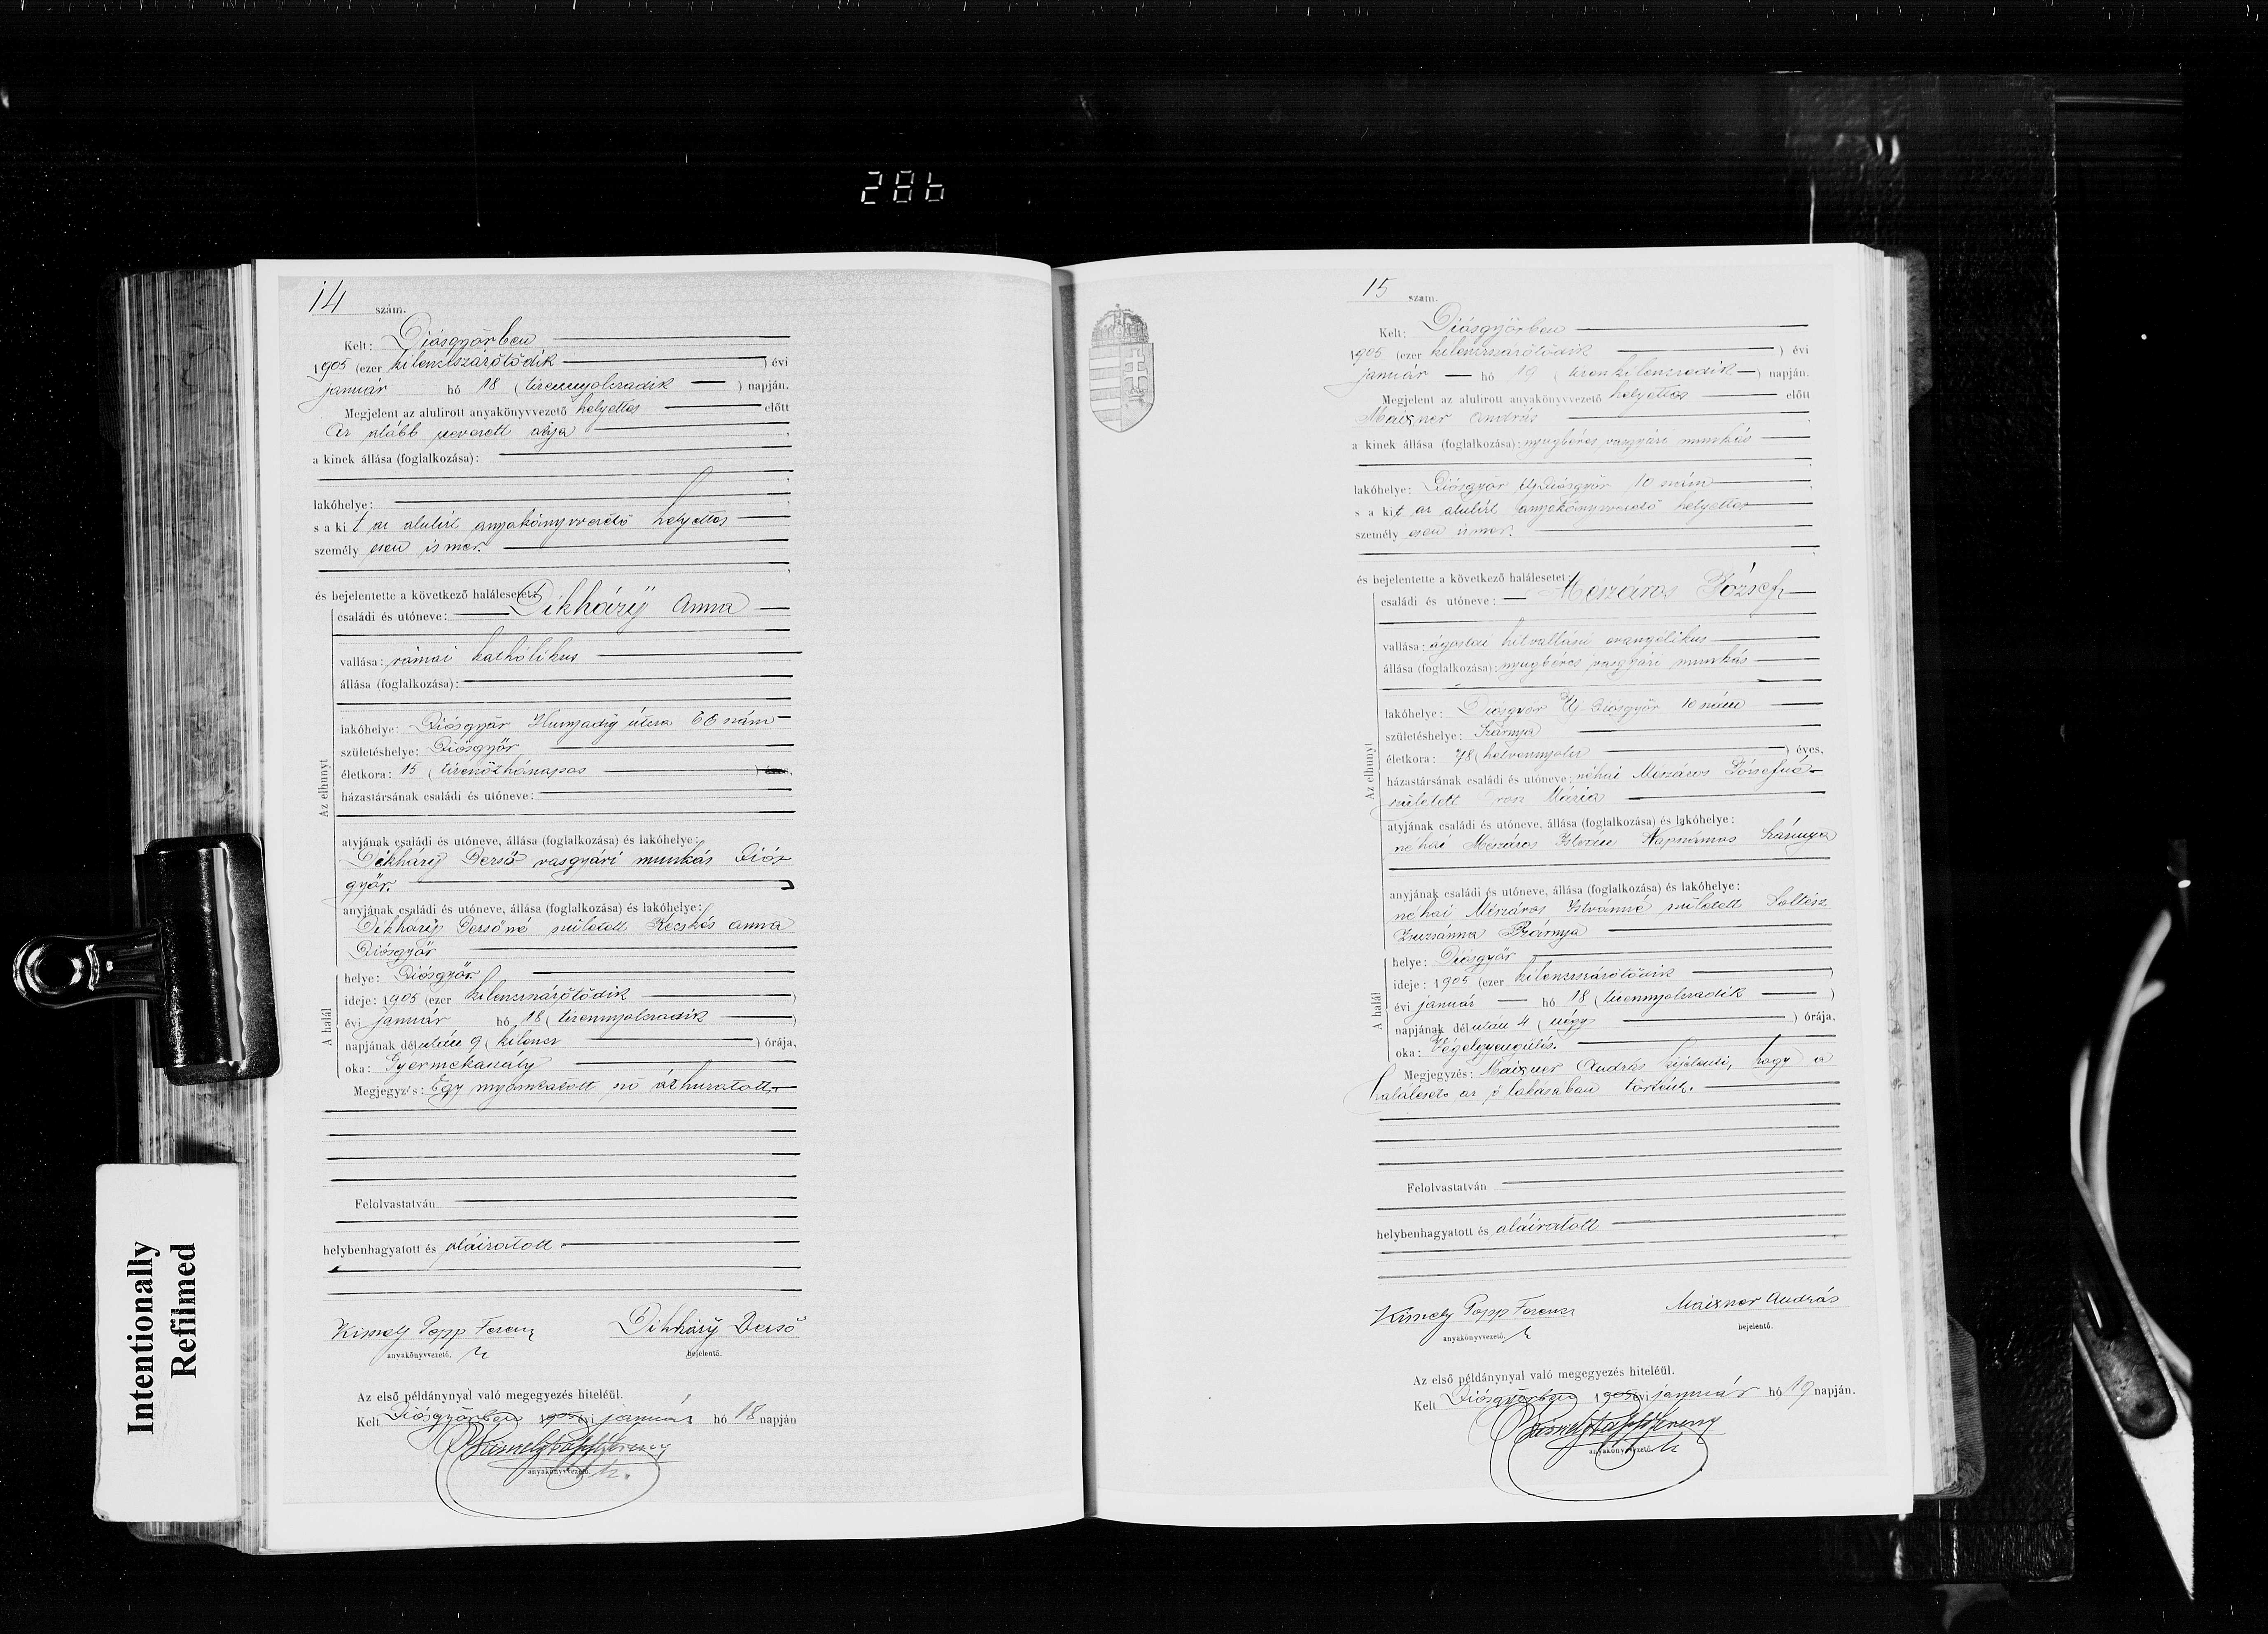 286
14 szám.
Kelt: Diósgyőrben
1905 (ezer kilenczszázötödik ) évi
január hó 18 (tizennyolczadik ) napján.
Megjelent az alulirott anyakönyvvezető helyettes előtt
az alább nevezett atyja
a kinek állása (foglalkozása):
lakóhelye:
s a kit az alulírt anyakönyvvezető helyettes
személyesen ismer.
és bejelentette a következő halálesetet:
Az elhunyt
családi és utóneve: Dikházÿ Anna
vallása: római katholikus
állása (foglalkozása):
lakóhelye: Diósgyőr Hunyady utcza 66 szám
születéshelye: Diósgyőr
életkora: 15 (tizenöt hónapos ) éves.
házastársának családi és utóneve:
atyjának családi és utóneve, állása (foglalkozása) és lakóhelye:
Dikházÿ Dezső vasgyári munkás Diós
győr.
anyjának családi és utóneve, állása (foglalkozása) és lakóhelye:
Dikházÿ Dezsőné született Kecskés Anna
Diósgyőr
A halál
helye: Diósgyőr
ideje: 1905 (ezer kilenczszázötödik )
évi január hó 18 (tizennyolczadik )
napjának délután 9 (kilencz ) órája,
oka: Gyermekaszály
Megjegyzés: Egy nyomtatott szó áthuzatott.
Felolvastatván
helybenhagyatott és aláiratott.
Kismely Papp Ferencz Dikházÿ Dezső
anyakönyvvezető. h bejelentő.
Az első példánynyal való megegyezés hiteléül.
Kelt Diósgyőrben 1905 évi január hó 18 napján
Kismely Papp Ferencz
anyakönyvvezető. h.
15 szám.
Kelt: Diósgyőrben
1905 (ezer kilenczszázötödik ) évi
január hó 19 (tizenkilenczedik ) napján.
Megjelent az alulirott anyakönyvvezető helyettes előtt
Maixner András
a kinek állása (foglalkozása): nyugbéres vasgyári munkás
lakóhelye: Diósgyőr Uj-Diósgyőr 10 szám
s a kit az alulírt anyakönyvvezető helyettes
személyesen ismer.
és bejelentette a következő halálesetet:
Az elhunyt
családi és utóneve: Mészáros József
vallása: ágostai hitvallású evangélikus
állása (foglalkozása): nyugbéres vasgyári munkás
lakóhelye: Diósgyőr Uj-Diósgyőr 10 szám
születéshelye: Szárnya
életkora: 78 (hetvennyolcz ) éves,
házastársának családi és utóneve: néhai Mészáros Józsefné
született Mária
atyjának családi és utóneve, állása (foglalkozása) és lakóhelye:
néhai Mészáros István Napszámos Szárnya
anyjának családi és utóneve, állása (foglalkozása) és lakóhelye:
néhai Mészáros Istvánné született Soltész
Zsuzsánna Szárnya
A halál
helye: Diósgyőr
ideje: 1905 (ezer kilenczszázötödik )
évi január hó 18 (tizennyolczadik )
napjának délután 4 (négy ) órája,
oka: Végelgyengülés.
Megjegyzés: Maixner András kijelenti, hogy a
haláleset az ő lakásában történt.
Felolvastatván
helybenhagyatott és aláiratott
Kismely Papp Ferencz Maixner András
anyakönyvvezető. h bejelentő.
Az első példánynyal való megegyezés hiteléül.
Kelt Diósgyőrben 1905 évi január hó 19 napján.
Kismely Papp Ferencz
anyakönyvvezető. h
Intentionally
Refilmed